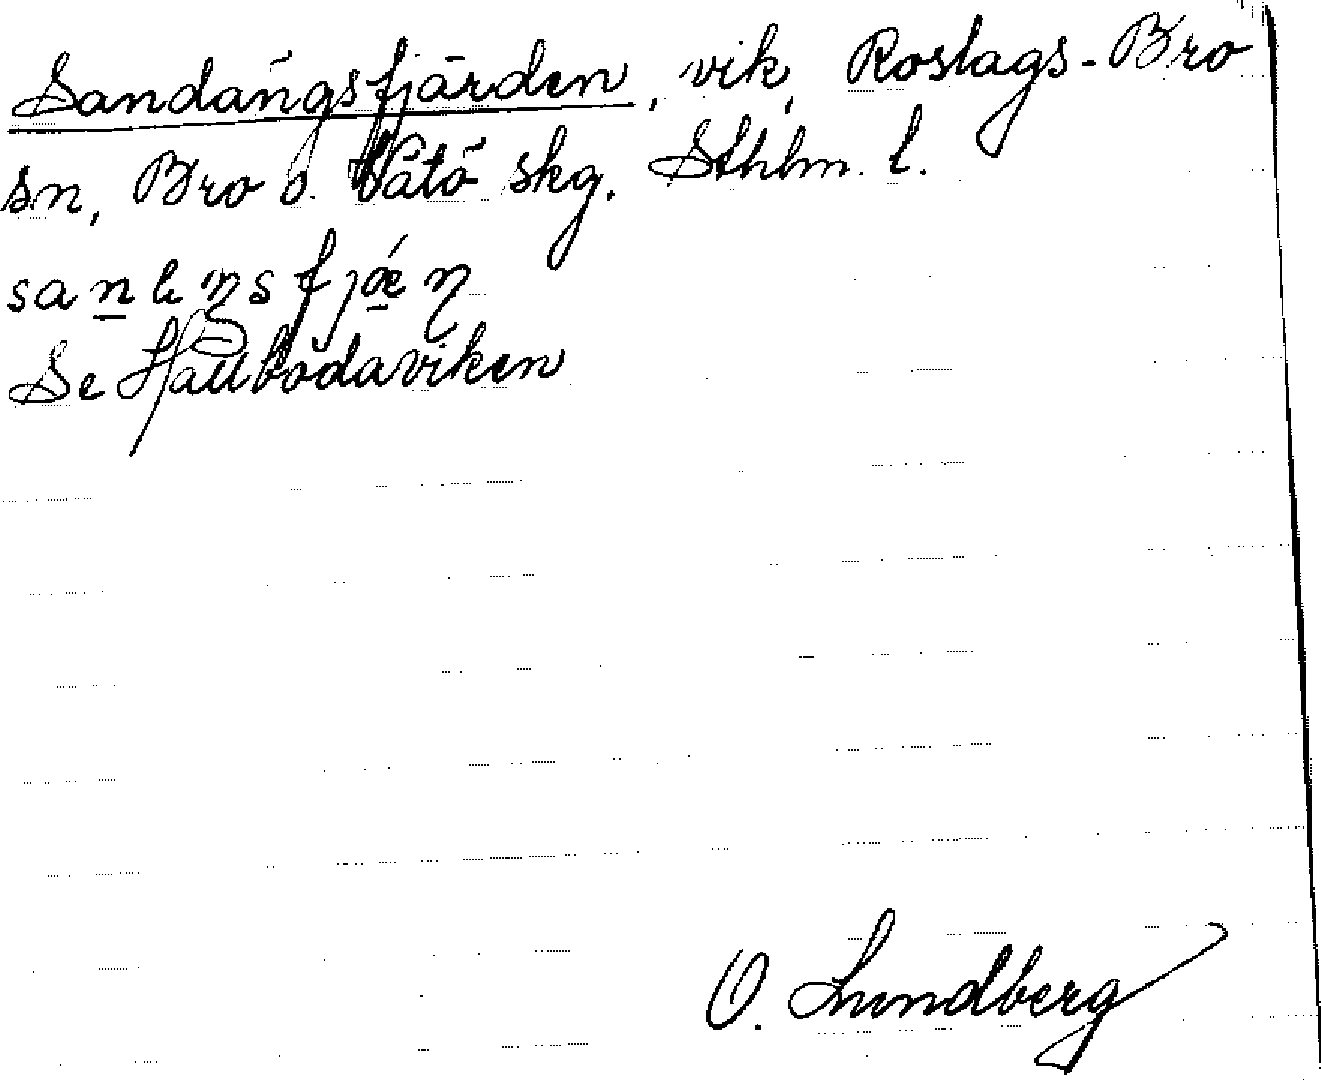 Sandängsfjärden, vik, Roslags-Bro
sn, Bro o. Vätö skg. Sthlm. l.
Se Hallbodaviken
O. Lundberg